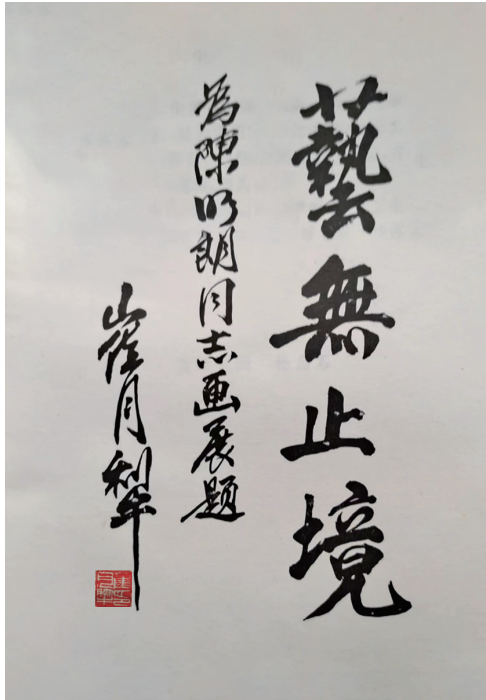 藝無止境
為陳明朗同志画展題
崔月犁